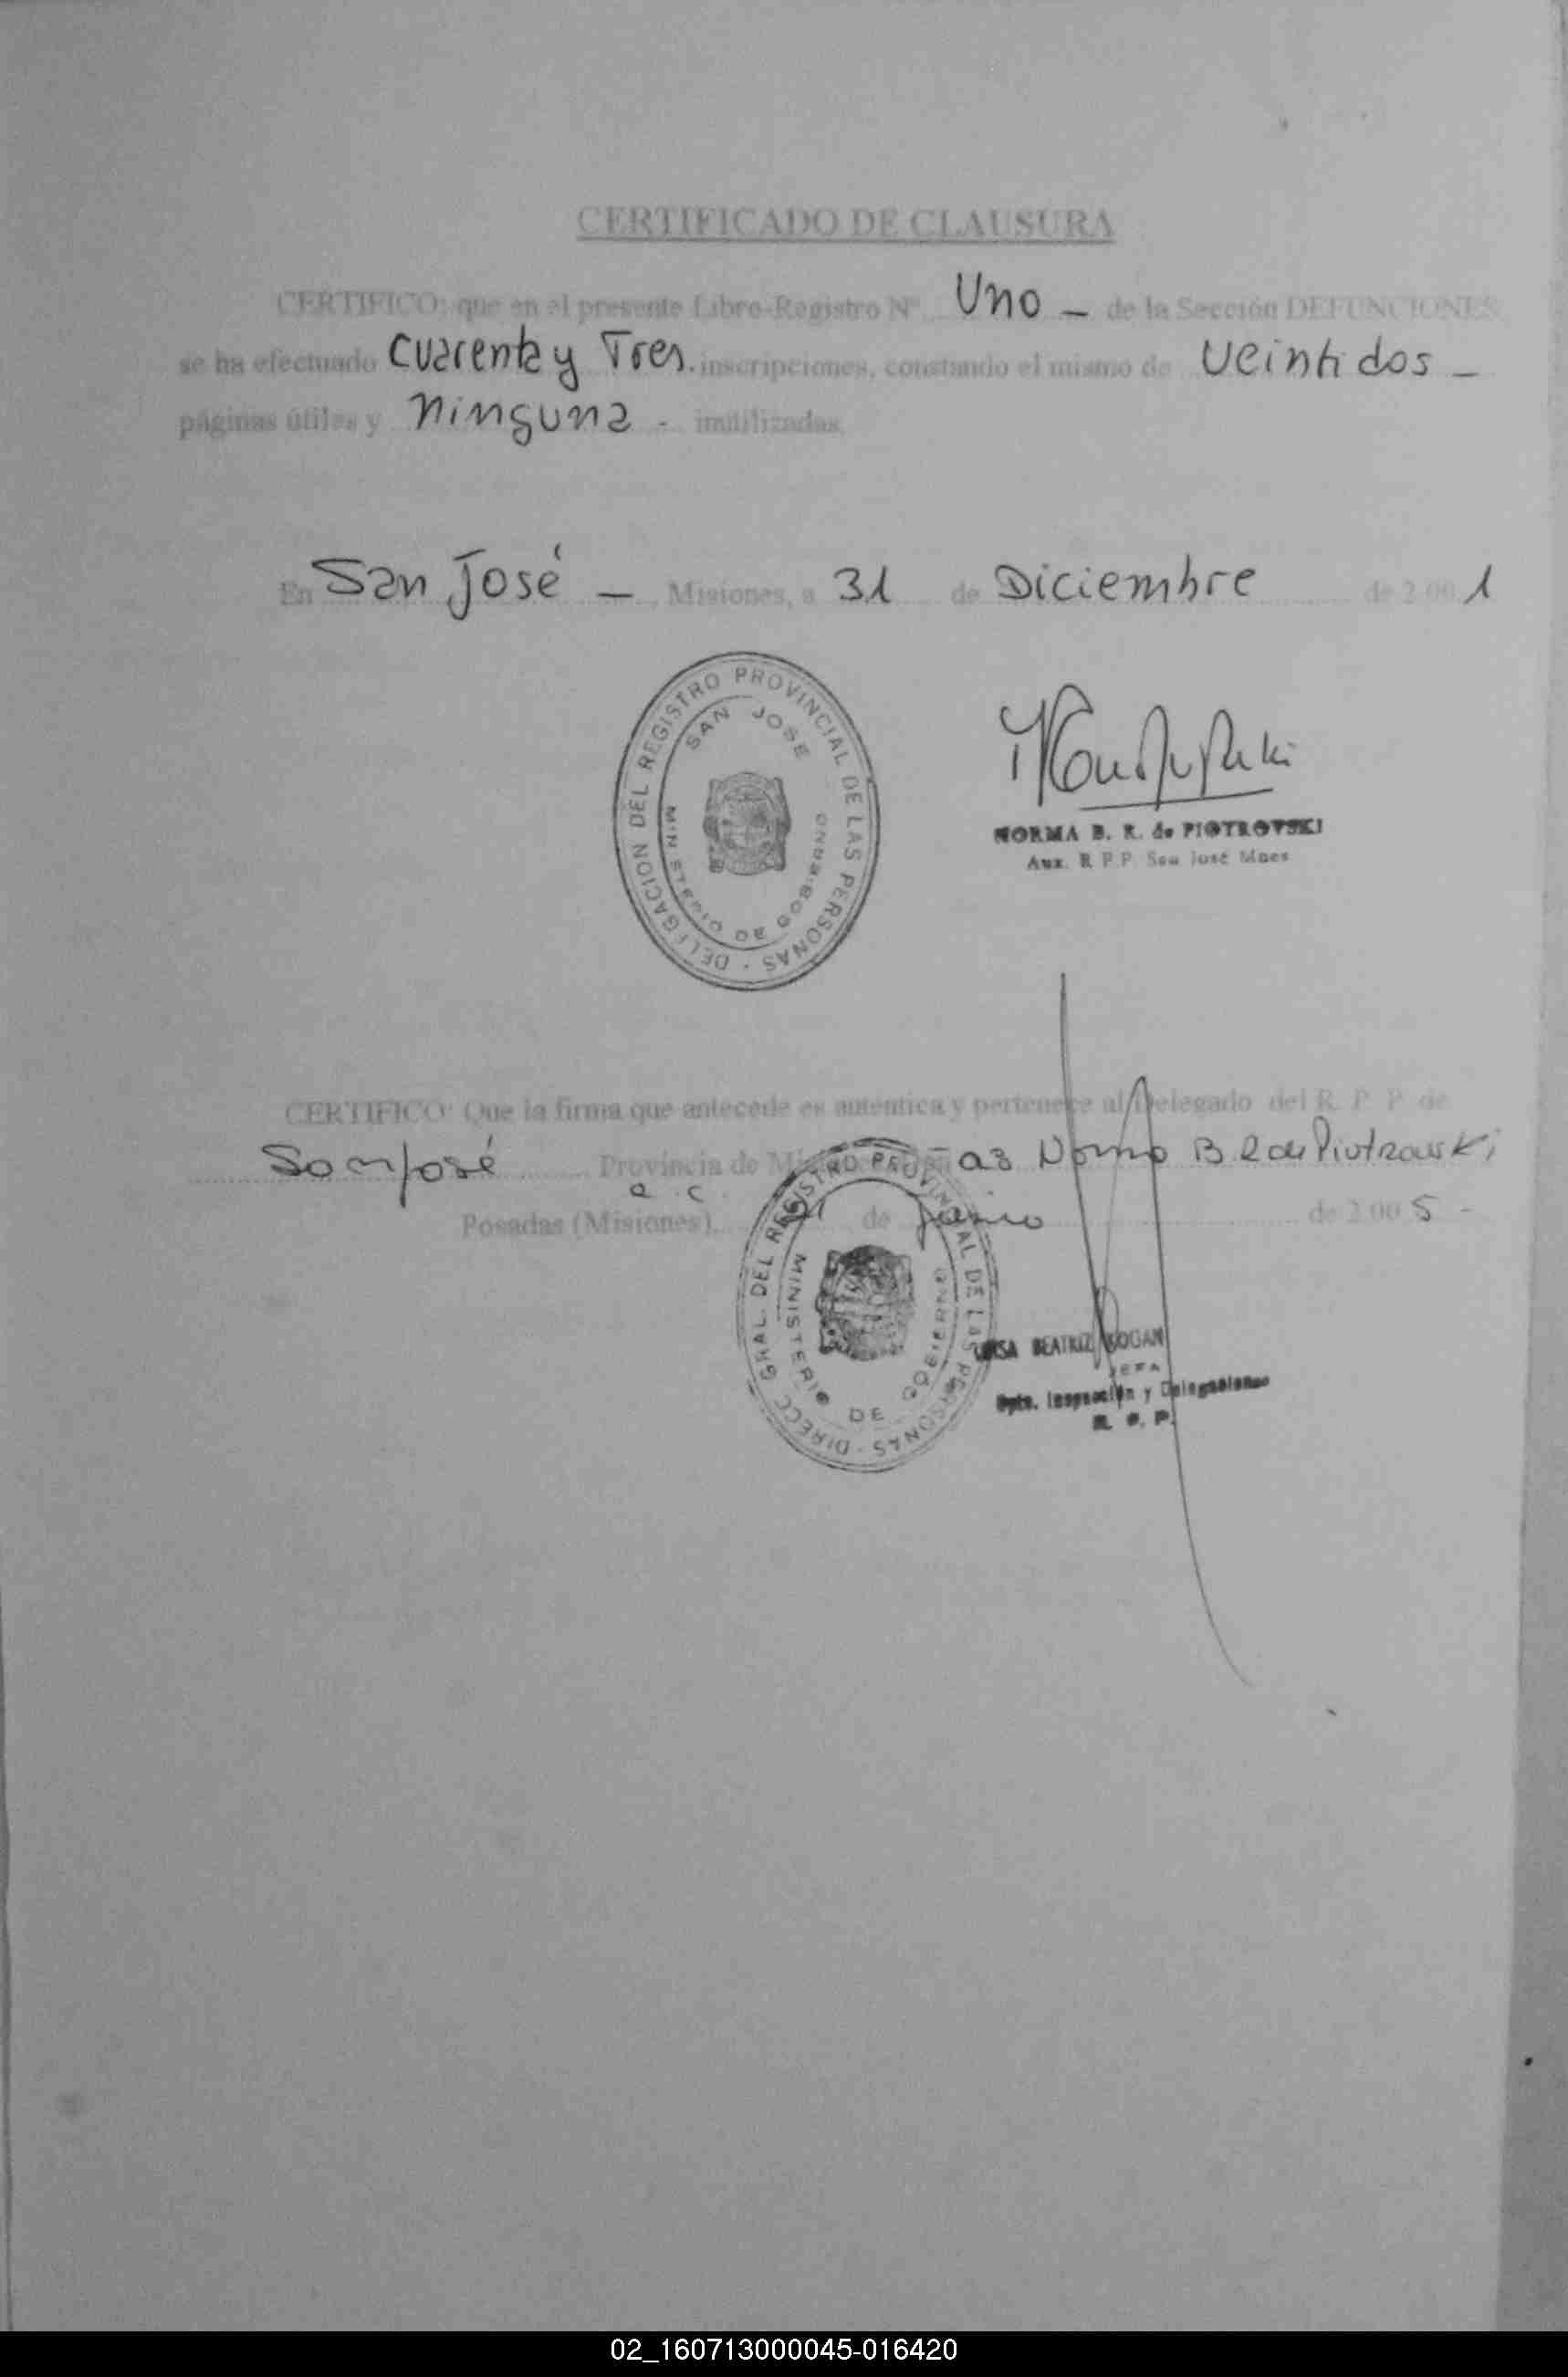 CERTIFICADO DE CLAUSURA
CERTIFICO: que en el presente Libro-Registro Nº Uno - de la Sección DEFUNCIONES
se ha efectuado Cuarenta y Tres. inscripciones, constando el mismo de Veintidos -
páginas útiles y Ninguna - inutilizadas.
En San José - , Misiones, a 31 de Diciembre de 2.00 1
DELEGACION DEL REGISTRO PROVINCIAL DE LAS PERSONAS -
SAN JOSE
MINISTERIO DE GOBIERNO
NORMA B. R. de PIOTROVSKI
Aux. R.P.P. San José Mnes
CERTIFICO: Que la firma que antecede es autentica y pertenece al Delegado del R. P. P. de
San José Provincia de Norma B R de Piotrowski
a. c.
Posadas (Misiones), de Junio de 2.00 5 -
DIRECC GRAL. DEL REGISTRO PROVINCIAL DE LAS PERSONAS -
MINISTERIO DE GOBIERNO
BEATRIZ
JEFA
Dpto. Inspección y Delegaciones
R. P. P.
02_160713000045-016420